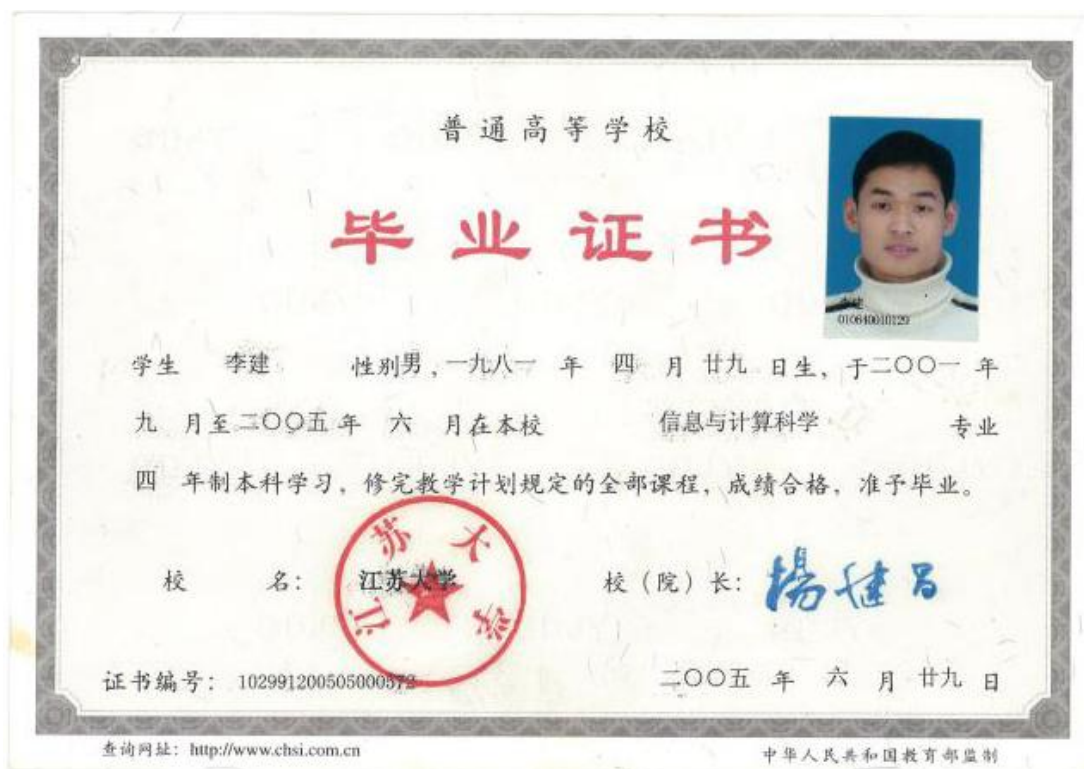 普通高等学校
毕业证书
李建
010640010129
学生 李建 性别男，一九八一 年 四 月 廿九 日生，于二〇〇一 年
九 月至二〇〇五年 六 月在本校 信息与计算科学 专业
四 年制本科学习，修完教学计划规定的全部课程，成绩合格，准予毕业。
校 名： 江苏大学 校（院）长： 楊健昌
江苏大学
证书编号： 102991200505000572 二〇〇五 年 六 月 廿九 日
查询网址：http://www.chsi.com.cn 中华人民共和国教育部监制